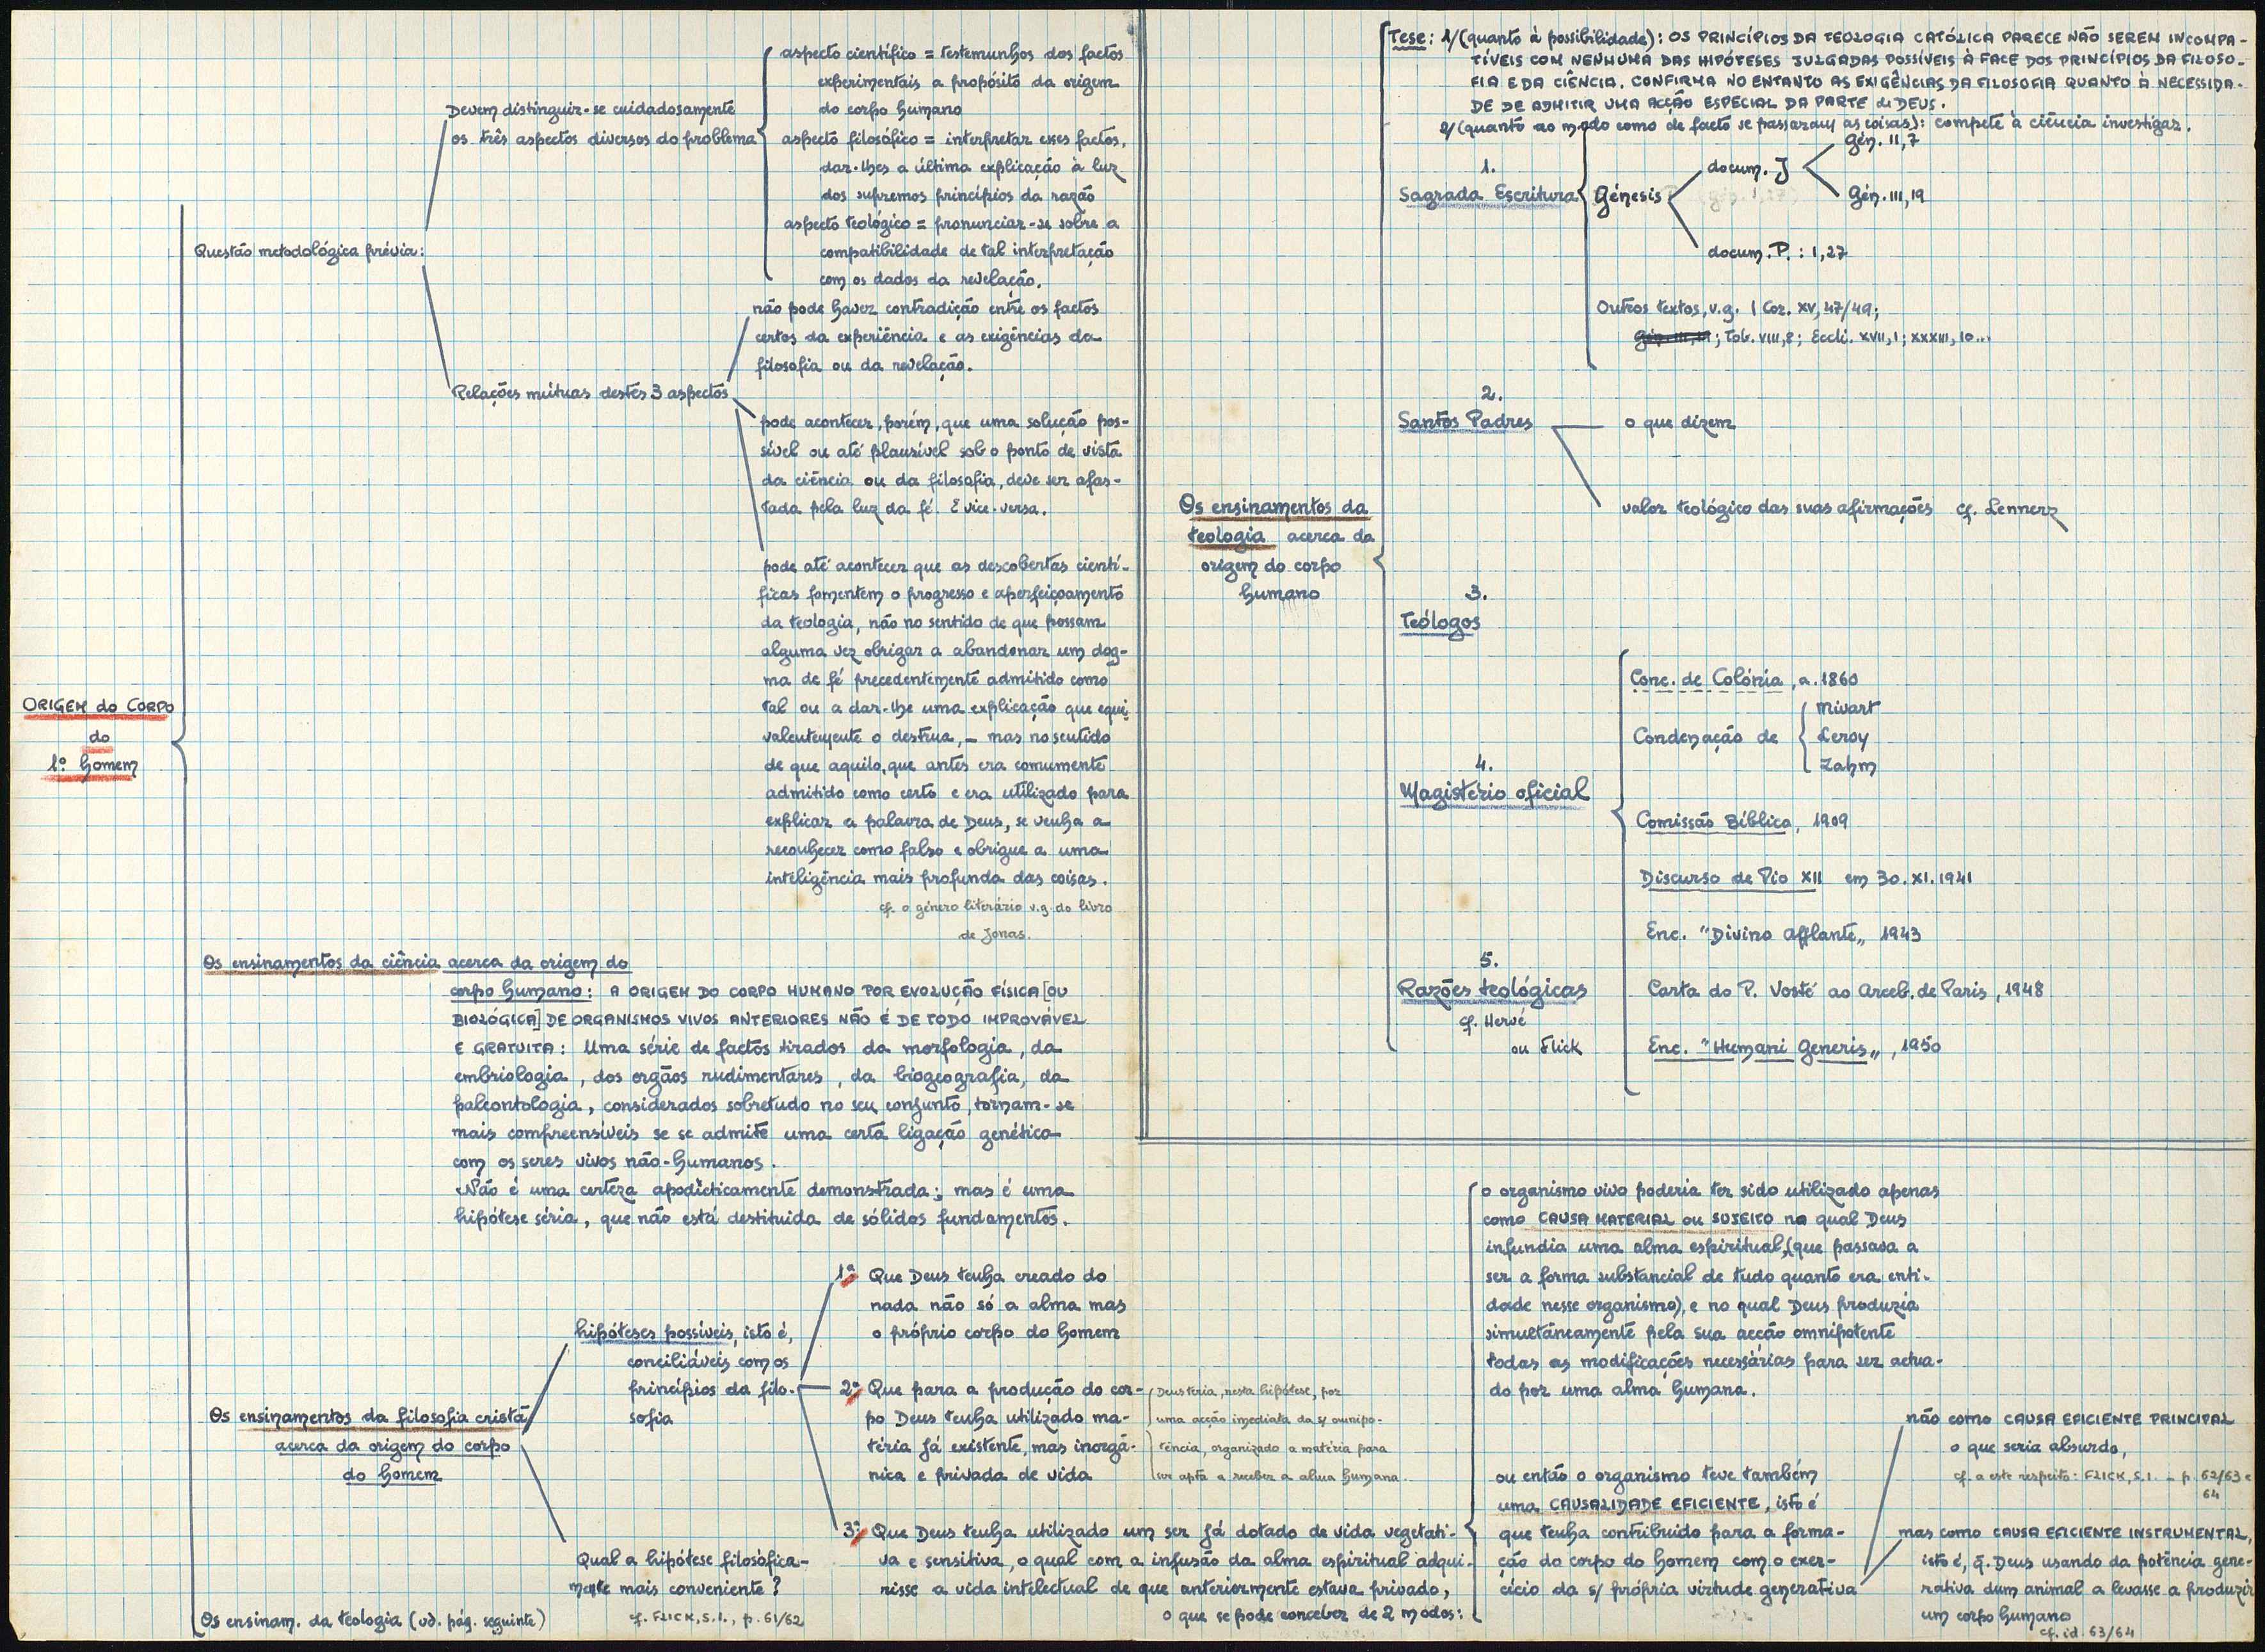 ORIGEM do CORPO
do
1º homem
Questão metodológica prévia:
Devem distinguir-se cuidadosamente
os três aspectos diversos do problema
aspecto científico = testemunhos dos factos
experimentais a propósito da origem
do corpo humano
aspecto filosófico = interpretar esses factos,
dar-lhes a última explicação à luz
dos supremos princípios da razão
aspecto teológico = pronunciar-se sobre a
compatibilidade de tal interpretação
com os dados da revelação.
Relações mútuas destes 3 aspectos
não pode haver contradição entre os factos
certos da experiência e as exigências da
filosofia ou da revelação.
pode acontecer, porém, que uma solução pos-
sível ou até plausível sob o ponto de vista
da ciência ou da filosofia, deve ser afas-
tada pela luz da fé. E vice-versa.
pode até acontecer que as descobertas cientí-
ficas fomentem o progresso e aperfeiçoamento
da teologia, não no sentido de que possam
alguma vez obrigar a abandonar um dog-
ma de fé precedentemente admitido como
tal ou a dar-lhe uma explicação que equi-
valentemente o destrua, – mas no sentido
de que aquilo, que antes era comumente
admitido como certo e era utilizado para
explicar a palavra de Deus, se venha a
reconhecer como falso e obrigue a uma
inteligência mais profunda das coisas.
cf. o género literário v.g. do livro
de Jonas.
Os ensinamentos da ciência acerca da origem do
corpo humano: A ORIGEM DO CORPO HUMANO POR EVOLUÇÃO FÍSICA [OU
BIOLÓGICA] DE ORGANISMOS VIVOS ANTERIORES NÃO É DE TODO IMPROVÁVEL
E GRATUITA: Uma série de factos tirados da morfologia, da
embriologia, dos orgãos rudimentares, da biogeografia, da
paleontologia, considerados sobretudo no seu conjunto, tornam-se
mais compreensíveis se se admite uma certa ligação genética
com os seres vivos não-humanos.
Não é uma certeza apodìcticamente demonstrada; mas é uma
hipótese séria, que não está destituida de sólidos fundamentos.
Os ensinamentos da filosofia cristã
acerca da origem do corpo
do homem
hipóteses possíveis, isto é,
conciliáveis com os
princípios da filo-
sofia
1ª Que Deus tenha creado do
nada não só a alma mas
o próprio corpo do homem
2ª Que para a produção do cor-
po Deus tenha utilizado ma-
téria já existente, mas inorgâ-
nica e privada de vida
Deus teria, nesta hipótese, por
uma acção imediata da s/ omnipo-
tência, organizado a matéria para
ser apta a receber a alma humana.
3ª Que Deus tenha utilizado um ser já dotado de vida vegetati-
va e sensitiva, o qual com a infusão da alma espiritual adqui-
risse a vida intelectual de que anteriormente estava privado,
o que se pode conceber de 2 modos:
Qual a hipótese filosòfica-
mente mais conveniente?
cf. FLICK, S.I., p. 61/62
Os ensinam. da teologia (vd. pág. seguinte)
o organismo vivo poderia ter sido utilizado apenas
como CAUSA MATERIAL ou SUJEITO na qual Deus
infundia uma alma espiritual, (que passava a
ser a forma substancial de tudo quanto era enti-
dade nesse organismo), e no qual Deus produzia
simultâneamente pela sua acção omnipotente
todas as modificações necessárias para ser actua-
do por uma alma humana.
ou então o organismo teve também
uma CAUSALIDADE EFICIENTE, isto é
que tenha contribuido para a forma-
ção do corpo do homem com o exer-
cício da s/ própria virtude generativa
não como CAUSA EFICIENTE PRINCIPAL
o que seria absurdo,
cf. a este respeito: FLICK, S.I. – p. 62/63 e
64
mas como CAUSA EFICIENTE INSTRUMENTAL,
isto é, q. Deus usando da potência gene-
rativa dum animal a levasse a produzir
um corpo humano
cf. id. 63/64
Os ensinamentos da
teologia acerca da
origem do corpo
humano
Tese: 1/(quanto à possibilidade): OS PRINCÍPIOS DA TEOLOGIA CATÓLICA PARECE NÃO SEREM INCOMPA-
TÍVEIS COM NENHUMA DAS HIPÓTESES JULGADAS POSSÍVEIS À FACE DOS PRINCÍPIOS DA FILOSO-
FIA E DA CIÊNCIA. CONFIRMA NO ENTANTO AS EXIGÊNCIAS DA FILOSOFIA QUANTO À NECESSIDA-
DE DE ADMITIR UMA ACÇÃO ESPECIAL DA PARTE de DEUS.
2/(quanto ao modo como de facto se passaram as coisas): compete à ciência investigar.
1.
Sagrada Escritura
Génesis
docum. J
Gén. II,7
Gén. III,19
docum. P. : 1,27
Outros textos, v.g. I Cor. XV, 47/49;
Gén. III,19; Tob. VIII,8; Eccli. XVII,1; XXXIII,10...
2.
Santos Padres
o que dizem
valor teológico das suas afirmações cf. Lennerz
3.
Teólogos
4.
Magistério oficial
Conc. de Colónia, a. 1860
Condenação de
Mivart
Leroy
Zahm
Comissão Bíblica, 1909
Discurso de Pio XII em 30.XI.1941
Enc. "Divino Afflante„ 1943
Carta do P. Vosté ao Arceb. de Paris, 1948
Enc. "Humani Generis„, 1950
5.
Razões teológicas
cf. Hervé
ou Flick